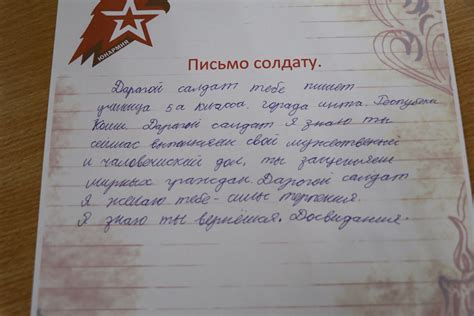 ЮНАРМИЯ
Письмо солдату.
Дарогой салдат тебе пишет
ученица 5а класса, горада инта. Республики
Коми. Дарогой салдат я знаю ты
сейчас выполняеш свой мужествений
и человеческий долг, ты защещяеш
мирных граждан. Дарогой салдат
я желаю тебе - силы терпения.
Я знаю ты вернёшся. Досвидания.